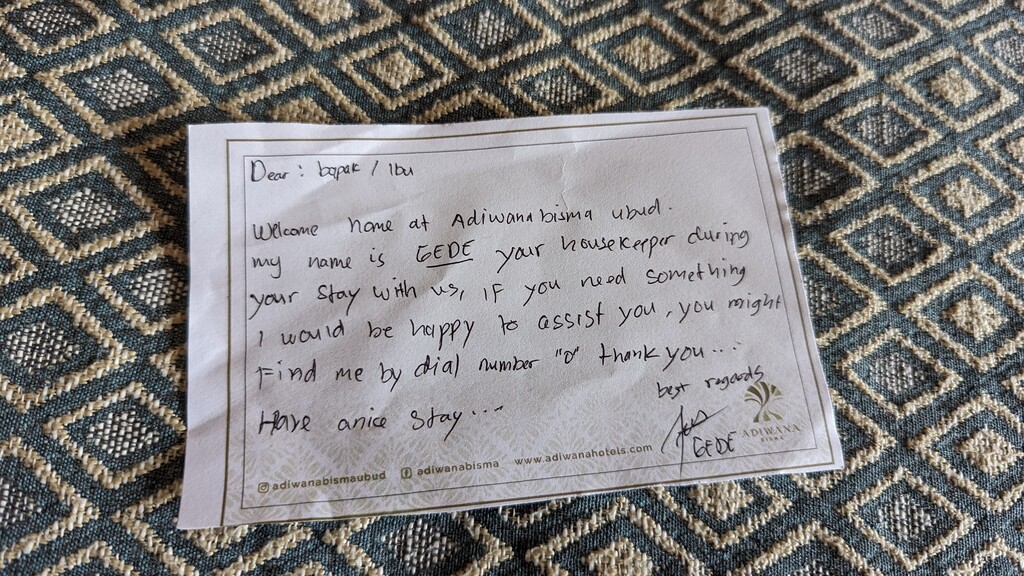 Dear : bapak / Ibu
Welcome home at Adiwana bisma ubud.
my name is GEDE your housekeeper during
your stay with us, IF you need something
I would be happy to assist you, you might
Find me by dial number "0" thank you...
Have a nice stay...
best regards
GEDE
ADIWANA
adiwanabismaubud adiwanabisma www.adiwanahotels.com